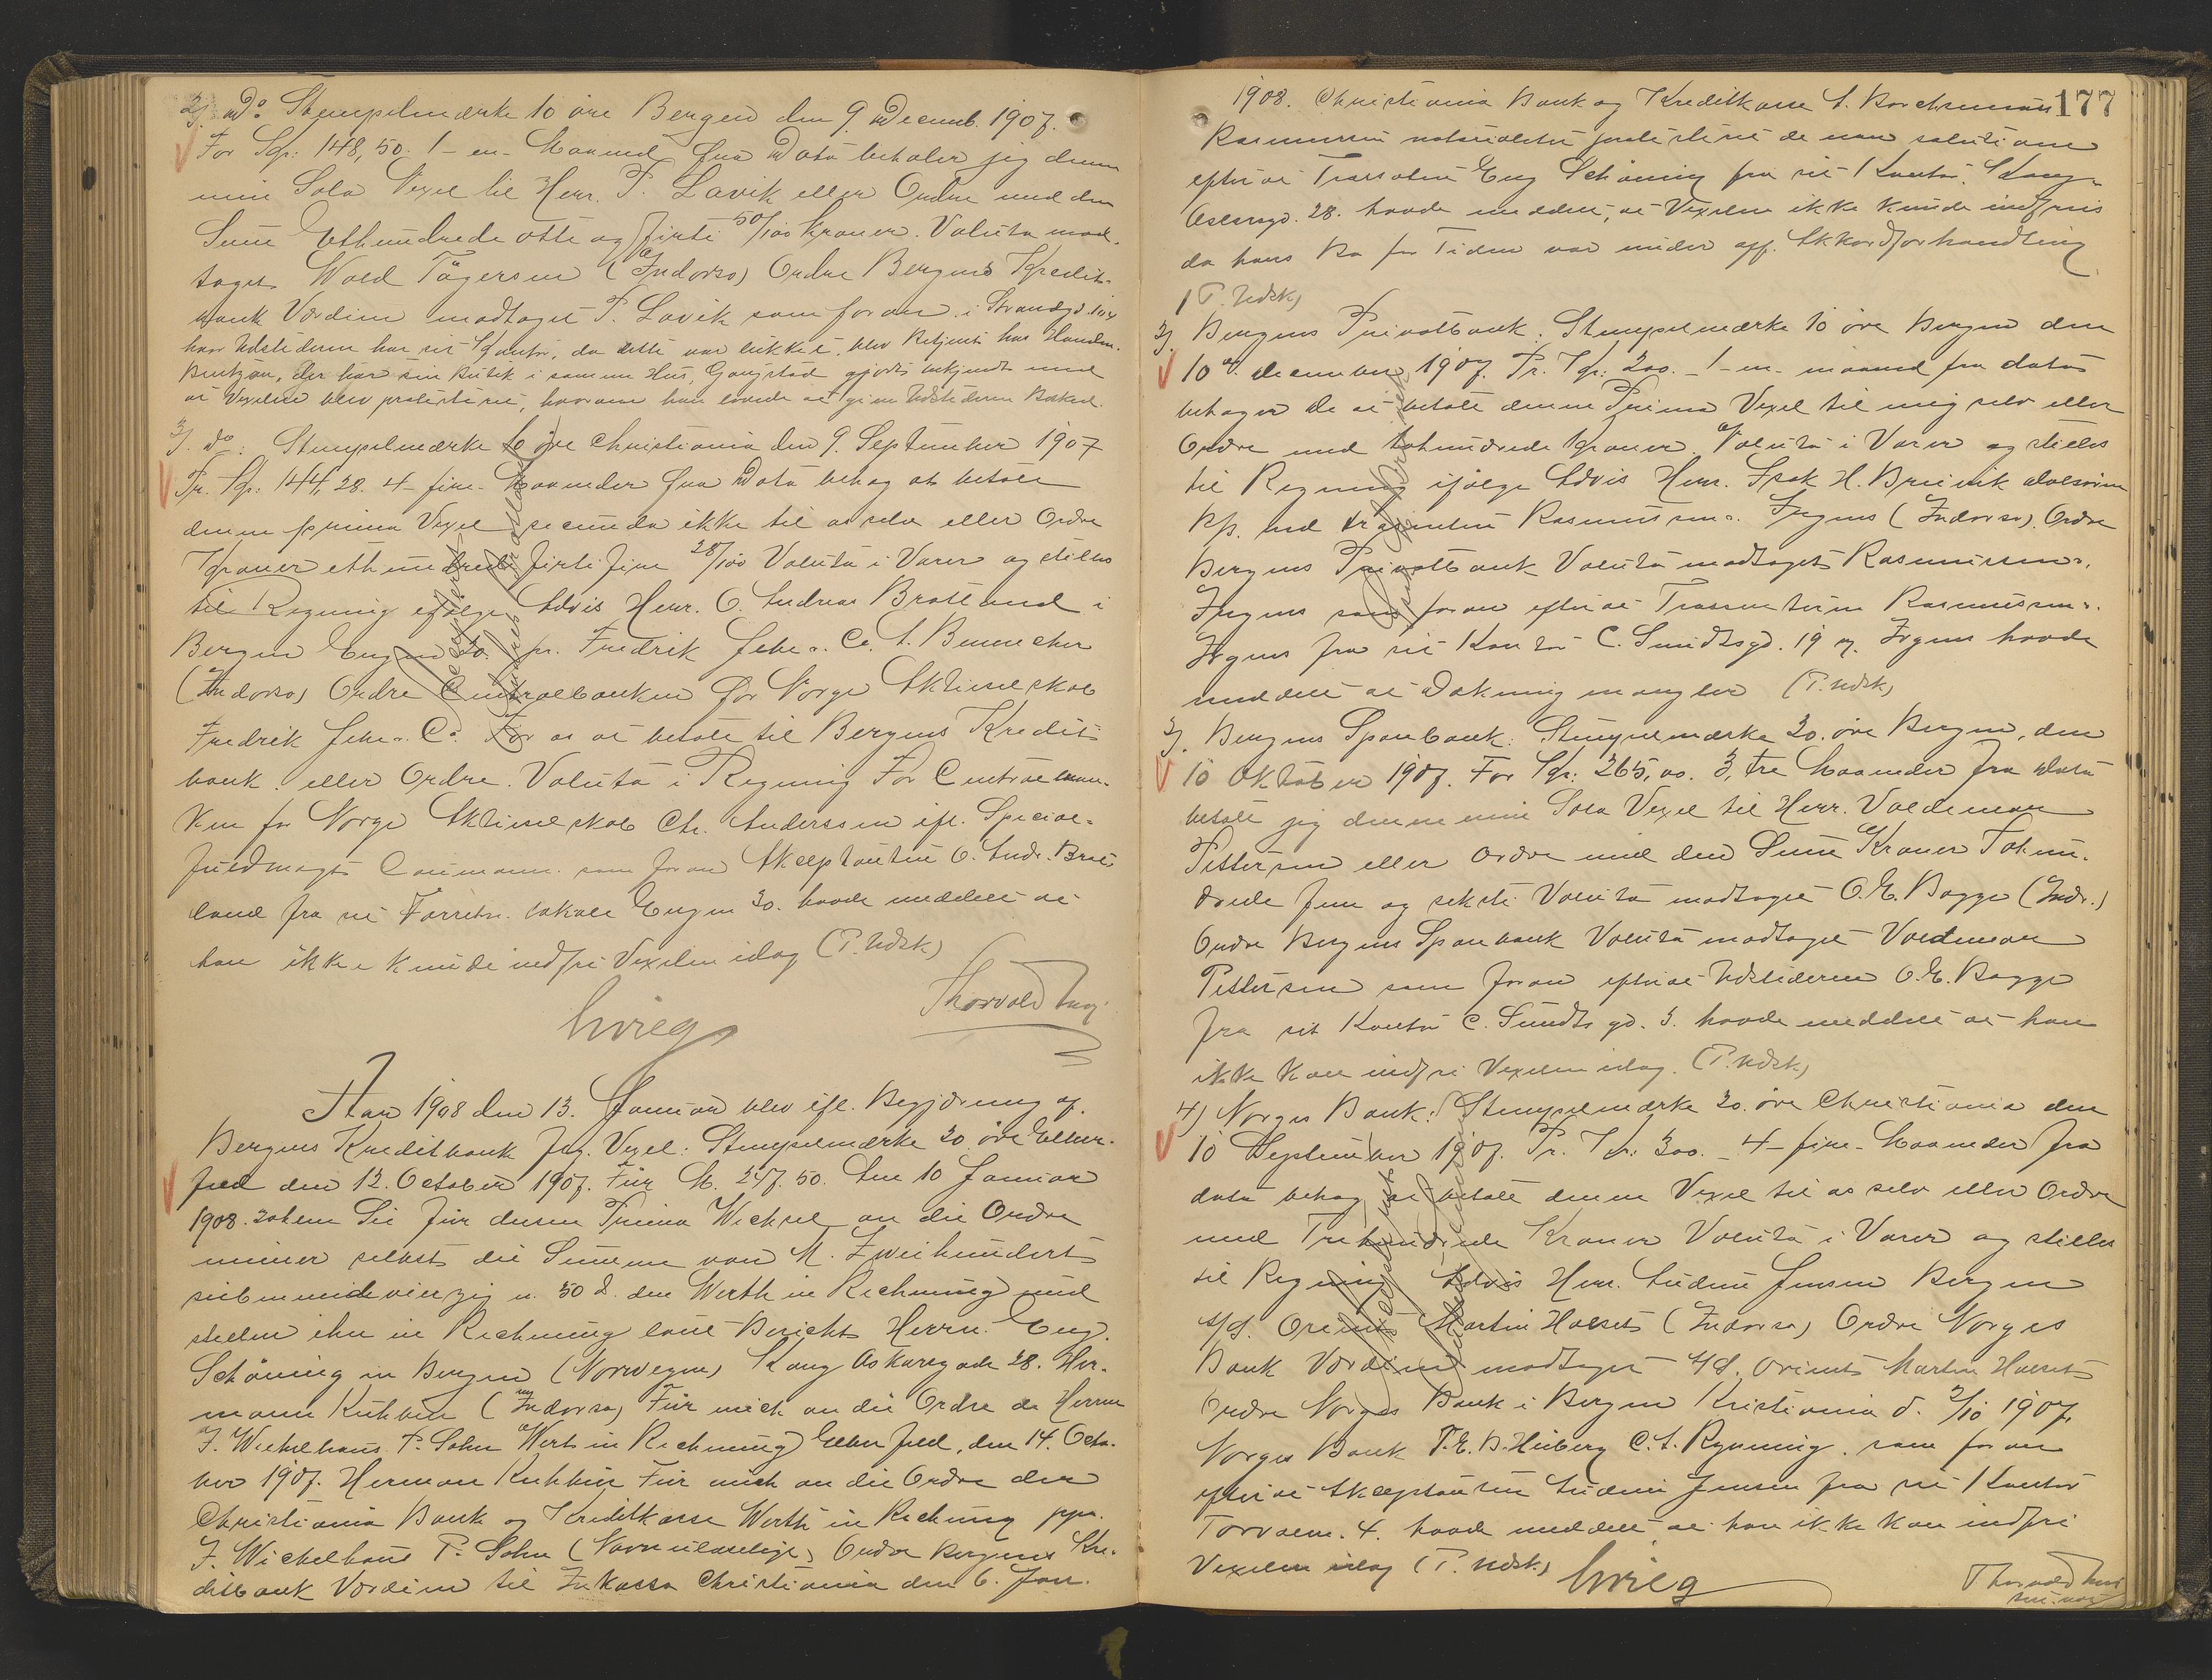 2) Do Stempelmærke 10 øre Bergen den 9 Decemb. 1907.
For Kr: 148,50. 1 - en - Maaned fra Dato betaler jeg denne
min Sola Vexel til Herr. P. Lavik eller Ordre med den
Sum Ethundrede otte og firti 50/100 Kroner. Valuta mod-
taget Wold Tågersen (Indorso) Ordre Bergens Kredit-
bank Værdien modtaget P. Lavik som foran i Strandgd.
hvor Udstederen har sit Kontor, da dette var lukket, blev Betjent hos Handlm.
Bentzon, der har sin Butik i samme Hus, Gaugstad gjort bekjendt med
at Vexelen blev protesteret, hvorom han lovede at give Udstederen Besked.
3) do: Stempelmærke 10 øre Christiania den 9. September 1907
Pr. Kr: 144,28. 4 - fire - Maaneder fra Dato behag at betale
denne prima Vexel secunda ikke til os selv eller Ordre
Kroner ethundrede firti fire 28/100 Valuta i Varer og stilles
til Regning ifølge Advis Herr. O. Andreas Bratland i
Bergen Engen 30. pr. Fredrik & Co. A.
(Indorso) Ordre Centralbanken for Norge Aktieselskab
Fredrik & Co. For os at betale til Bergens Kredit-
bank eller Ordre. Valuta i Regning For Centralban-
ken for Norge Aktieselskab Chr. Anderssen ifl. Special-
fuldmagt som foran Akceptanten O. Andr. Brat-
land fra sit Forretn. lokale Engen 30. havde meddelt at
han ikke kunde indfri Vexelen idag (P. Udsk)
Thorvald
Aar 1908 den 13. Januar blev ifl. Begjæring af
Bergens Kreditbank flg. Vexel: Stempelmærke 20 øre Elber-
feld den 12. October 1907. Für M. 247.50. Am 10 Januar
1908. zahlen Sie für diesen Prima Wechsel an die Ordre
meiner selbst die Summe von M. Zweihundert
siebenundvierzig u. 50 d. den Werth in Rechnung und
stellen ihn in Rechnung laut Bericht Herrn. Eug.
Schöning in Bergen (Norwegen) Kong Oskarsgade 28. Her-
mann Kuhbier (Indorso) Für mich an die Ordre de Herren
J. Wichelhaus P. Sohn Werth in Rechnung) Elberfeld, den 14. Octo-
ber 1907. Herman Kuhbier Für mich an die Ordre der
Christiania Bank og Kreditkasse Werth in Rechnung ppa.
J. Wichelhaus P. Sohn (Navn ulæselige) Ordre Bergens Kre-
ditbank Værdien til Inkasso Christiania den 6. Jan.
177
1908. Christiania Bank og Kreditkasse A.
Rasmussen notarialiter protesteret de non solutione
efter at Trassaten Eug Schöning fra sit Kontor. Kong
Oskarsgd. 28. havde meddelt, at Vexelen ikke kunde indfries
da hans Bo for Tiden var under off. Akkordforhandling
(P. Udsk)
2) Bergens Privatbank. Stempelmærke 10 øre Bergen den
10de december 1907. Pr. Kr: 200. - 1 - en - maaned fra dato
behager De at betale denne Prima Vexel til mig selv eller
Ordre med tohundrede Kroner. Valuta i Varer og stilles
til Regning ifølge Advis Herr. Isak H. Breivik
kp. ved Rasmussen & (Indorso). Ordre
Bergens Privatbank Valuta modtaget Rasmussen &
som foran efter at Trassenterne Rasmussen &
fra sit Kontor C. Sundtsgd. 19 havde
meddelt at Dækning mangler (P. Udsk)
3) Bergens Sparebank: Stempelmærke 20. øre Bergen, den
10 Oktober 1907. For Kr: 265,00. 3, tre Maaneder fra Dato
betale jeg denne min Sola Vexel til Herr. Valdemar
Pettersen eller ordre med den Sum Kroner Tohun-
drede fem og seksti Valuta modtaget O. E. Bagge (Indr.)
Ordre Bergens Sparebank Valuta modtaget Valdemar
Pettersen som foran efter at Udstederen O. E. Bagge
fra sit Kontor C. Sundts gd. 3. havde meddelt at han
ikke kan indfri Vexelen idag. (P. Udsk)
4) Norges Bank: Stempelmærke 20. øre Christiania den
10 September 1907. Pr. Kr: 300. - 4 - fire - Maaneder fra
dato behag at betale denne Vexel til os selv eller Ordre
med Trehundrede Kroner Valuta i Varer og stilles
til Regning Advis Herr. Jensen Bergen
A/S. Orient Martin Halset (Indorso) Ordre Norges
Bank Værdien modtaget A/S. Orient Martin Halset
Ordre Norges Bank i Bergen Kristiania d. 2/10 1907.
Norges Bank T. E. B. Heiberg C. A. Rynning. som foran
efter at Akceptanten Jensen fra sit Kontor
Torvalm. 4. havde meddelt at han ikke kan indfri
Vexelen idag (P. Udsk.)
Thorvald